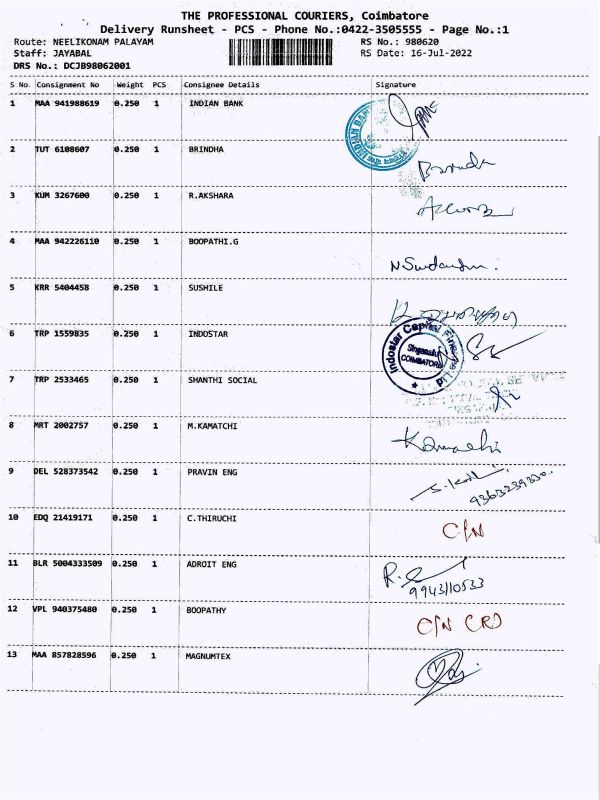 THE PROFESSIONAL COURIERS, Coimbatore
Delivery Runsheet - PCS - Phone No.:0422-3505555 - Page No.:1
Route: NEELIKONAM PALAYAM RS No.: 980620
Staff: JAYABAL RS Date: 16-Jul-2022
DRS No.: DCJB98062001
S No. Consignment No Weight PCS Consignee Details Signature
1 MAA 941988619 0.250 1 INDIAN BANK
2 TUT 6108607 0.250 1 BRINDHA
3 KUM 3267600 0.250 1 R.AKSHARA
4 MAA 942226110 0.250 1 BOOPATHI.G
5 KRR 5404458 0.250 1 SUSHILE
6 TRP 1559835 0.250 1 INDOSTAR
Indostar Capital Finance Ltd
Singanallur
COIMBATORE
7 TRP 2533465 0.250 1 SHANTHI SOCIAL
8 MRT 2002757 0.250 1 M.KAMATCHI Kamachi
9 DEL 528373542 0.250 1 PRAVIN ENG
9363239330
10 EDQ 21419171 0.250 1 C.THIRUCHI C/N
11 BLR 5004333509 0.250 1 ADROIT ENG
9943110533
12 VPL 940375480 0.250 1 BOOPATHY C/N CRD
13 MAA 857828596 0.250 1 MAGNUMTEX